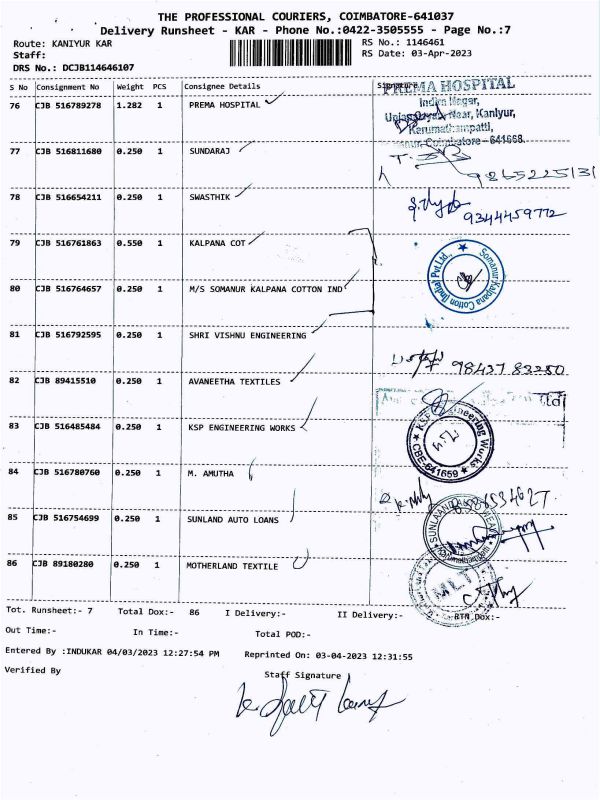 THE PROFESSIONAL COURIERS, COIMBATORE-641037
Delivery Runsheet - KAR - Phone No.:0422-3505555 - Page No.:7
Route: KANIYUR KAR RS No.: 1146461
Staff: RS Date: 03-Apr-2023
DRS No.: DCJB114646107
S No Consignment No Weight PCS Consignee Details Signature
PREMA HOSPITAL
76 CJB 516789278 1.282 1 PREMA HOSPITAL
Indira Nagar,
Kaniyur,
Karumathampatti,
Coimbatore - 641668.
77 CJB 516811680 0.250 1 SUNDARAJ
9865225131
78 CJB 516654211 0.250 1 SWASTHIK
9344459772
79 CJB 516761863 0.550 1 KALPANA COT
Somanur Kalpana Cotton (India) Pvt.Ltd.,
80 CJB 516764657 0.250 1 M/S SOMANUR KALPANA COTTON IND
81 CJB 516792595 0.250 1 SHRI VISHNU ENGINEERING
98437 83250
82 CJB 89415510 0.250 1 AVANEETHA TEXTILES
Ltd
83 CJB 516485484 0.250 1 KSP ENGINEERING WORKS
KSP Engineering Works
CBE-641659
84 CJB 516780760 0.250 1 M. AMUTHA
85 CJB 516754699 0.250 1 SUNLAND AUTO LOANS
86 CJB 89180280 0.250 1 MOTHERLAND TEXTILE
MLT
Tot. Runsheet:- 7 Total Dox:- 86 I Delivery:- II Delivery:- RTN Dox:-
Out Time:- In Time:- Total POD:-
Entered By :INDUKAR 04/03/2023 12:27:54 PM Reprinted On: 03-04-2023 12:31:55
Verified By Staff Signature